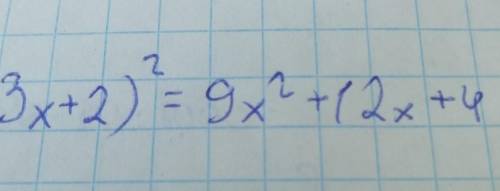 3x+2)² = 9x² + 12x + 4